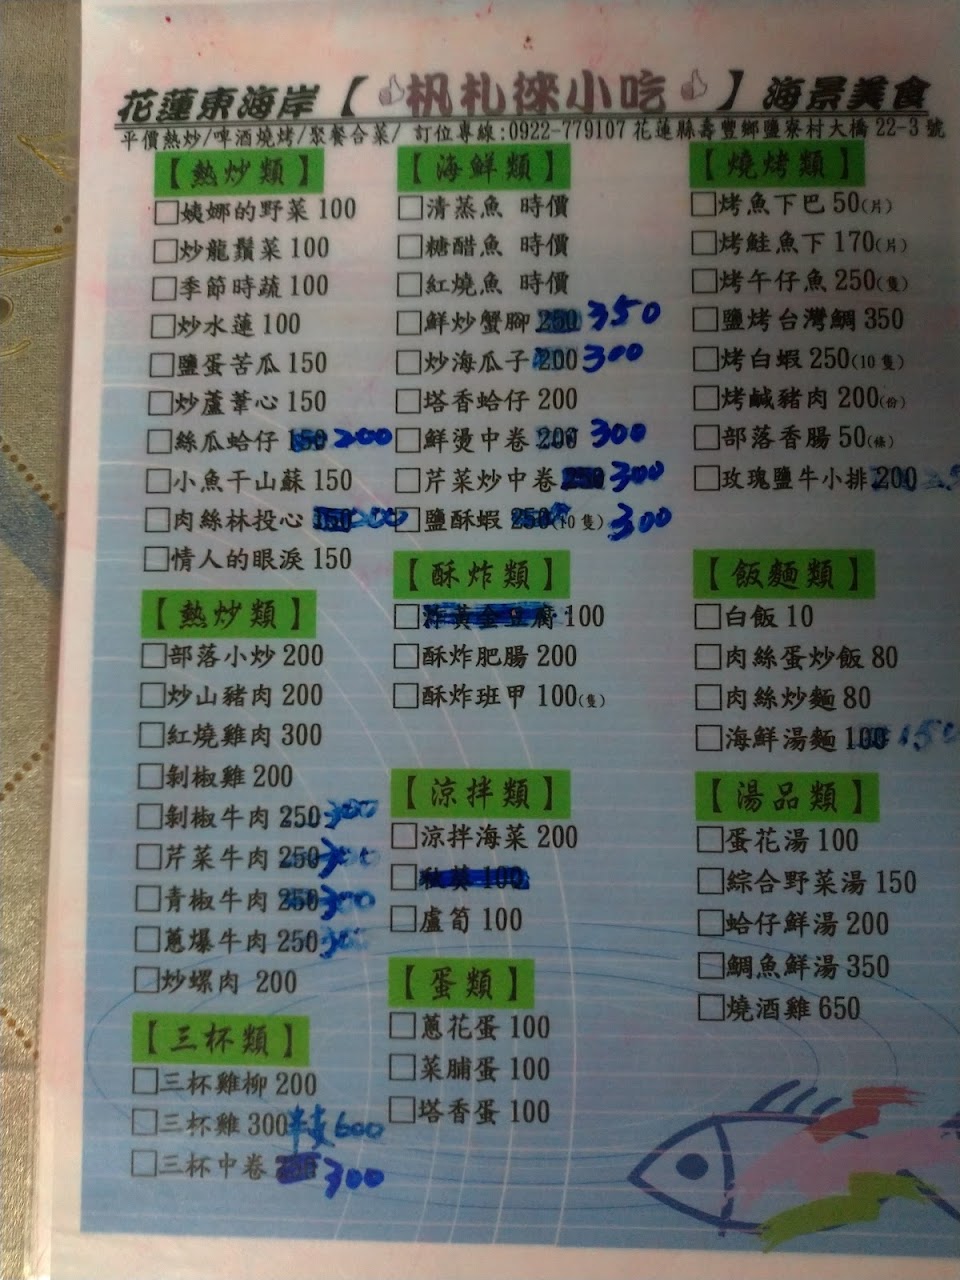 花蓮東海岸【枫札徠小吃】海景美食
平價熱炒/啤酒燒烤/聚餐合菜/ 訂位專線:0922-779107 花蓮縣壽豐鄉鹽寮村大橋 22-3 號
【熱炒類】
□姨娜的野菜 100
□炒龍鬚菜 100
□季節時蔬 100
□炒水蓮 100
□鹽蛋苦瓜 150
□炒蘆葦心 150
□絲瓜蛤仔 150 200
□小魚干山蘇 150
□肉絲林投心 150 200
□情人的眼淚 150
【熱炒類】
□部落小炒 200
□炒山豬肉 200
□紅燒雞肉 300
□剝椒雞 200
□剝椒牛肉 250 300
□芹菜牛肉 250 300
□青椒牛肉 250 300
□蔥爆牛肉 250 300
□炒螺肉 200
【三杯類】
□三杯雞柳 200
□三杯雞 300 半隻 600
□三杯中卷 300
【海鮮類】
□清蒸魚 時價
□糖醋魚 時價
□紅燒魚 時價
□鮮炒蟹腳 250 350
□炒海瓜子 200 300
□塔香蛤仔 200
□鮮燙中卷 200 300
□芹菜炒中卷 250 300
□鹽酥蝦 250(10 隻) 300
【酥炸類】
□炸黃金豆腐 100
□酥炸肥腸 200
□酥炸班甲 100(隻)
【涼拌類】
□涼拌海菜 200
□秋葵 100
□盧筍 100
【蛋類】
□蔥花蛋 100
□菜脯蛋 100
□塔香蛋 100
【燒烤類】
□烤魚下巴 50(片)
□烤鮭魚下 170(片)
□烤午仔魚 250(隻)
□鹽烤台灣鯛 350
□烤白蝦 250(10 隻)
□烤鹹豬肉 200(份)
□部落香腸 50(條)
□玫瑰鹽牛小排 200
【飯麵類】
□白飯 10
□肉絲蛋炒飯 80
□肉絲炒麵 80
□海鮮湯麵 100 150
【湯品類】
□蛋花湯 100
□綜合野菜湯 150
□蛤仔鮮湯 200
□鯛魚鮮湯 350
□燒酒雞 650